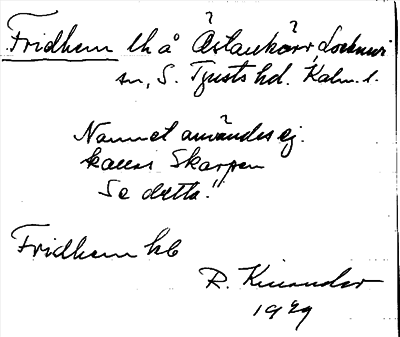 Fridhem lh å Åslankärr, Locknevi
sn, S. Tjusts hd. Kalm. l.
Namnet användes ej.
kallas Skarpen
Se detta!
Fridhem hb
R. Kinander
1929